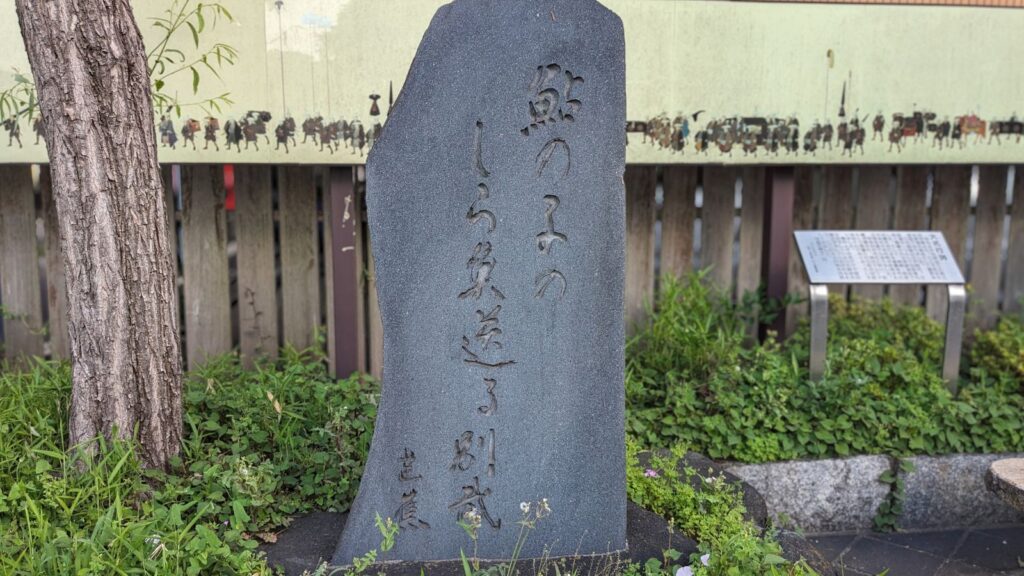 鮎の子の
しら魚送る別哉
芭蕉